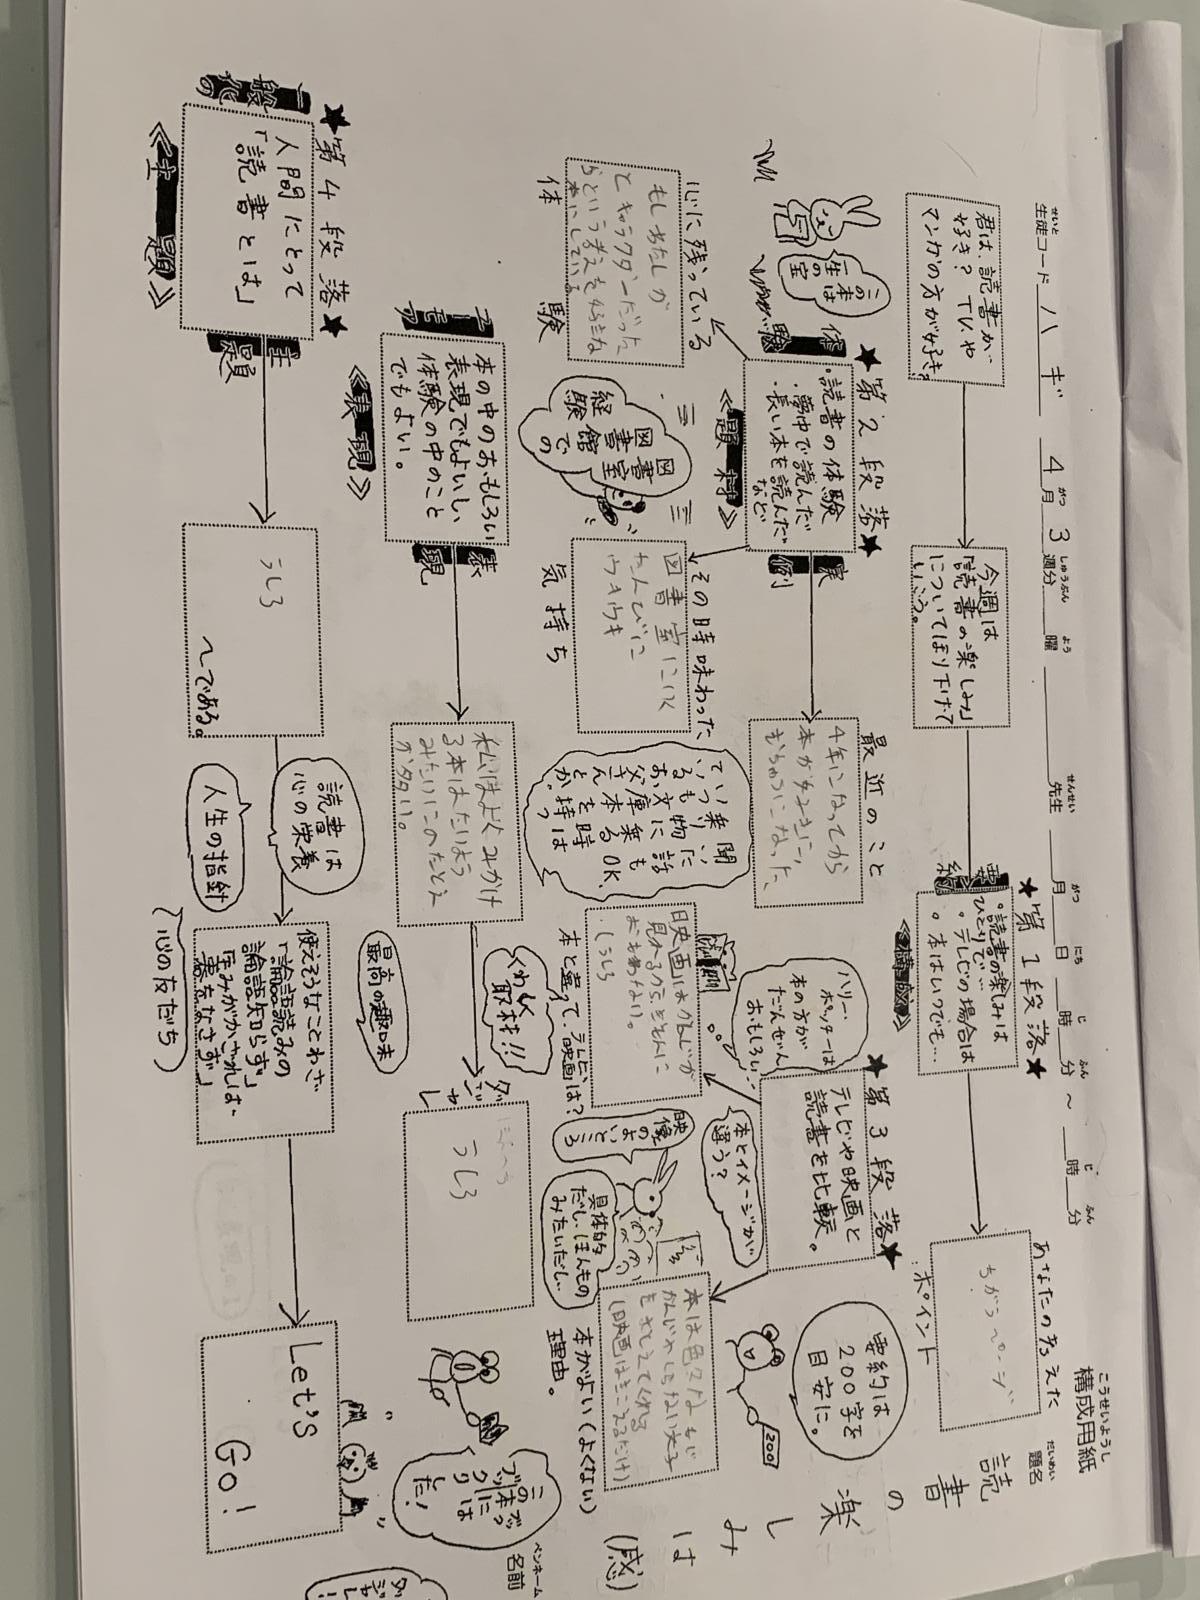 構成用紙
こうせいようし
題名
だいめい
読書の楽しみは(感)
ペンネーム
名前
生徒コード
せいと
ハギ
4月3週分
がつ
しゅうぶん
曜
よう
先生
せんせい
月
がつ
日
にち
時
じ
分
ふん
～
時
じ
分
ふん
君は、読書が
好き？TVや
マンガの方が好き？
今週は
「読書の楽しみ」
についてほり下げて
いこう。
★第１段落★
要約
・読書の楽しみは
ひとりで
・テレビの場合は
・本はいつでも…
≪構成≫
あなたの考えた
ポイント
ちがうページ
要約は
200字を
目安に。
200
この本
は
生の
宝
★第２段落★
体験
・読書の体験
・夢中で読んだ
・長い本を読んだ
など
≪題材≫
実例
最近のこと
4年になってから
本が好きに
むちゅうになった、
心に残っている
体験
もしわたしが
とキャラクターだった
らという考えを
本にしている
図書室
図書館での
経験
その時味わった
気持ち
図書室に
たんびに
ウキウキ
聞いた話も
OK、
乗り物に乗る時は
いつも文庫本を持っ
ているお父さんとか
★第３段落★
テレビや映画と
読書を比較。
ハリー・
ポッターは
本の方が
だんぜん
おもしろい…
本とイメージが
違う？
本と違って、テレビ、
映画は？
映画はかんじが
(うしろ
映像の
よいところ
具体的
だし、ほんもの
みたいだし…
本がよい(よくない)
理由。
本は色々な
かんじやしらない
をおしえてくれる
(映画はきこえるだけ)
ユーモア
本の中のおもしろい
表現でもよいし、
体験の中のこと
でもよい。
≪表現≫
表現
くわしく
取材!!
最高の趣味
ダジャレ
うしろ
この本
には
ブックリ
した！
★第４段落★
一般化の
人間にとって
「読書とは」
≪主題≫
主題
うしろ
～である。
読書は
心の栄養
人生の指針
心の友だち
使えそうなことわざ
「論語読みの
論語知らず」
「厚みがかさなれば
Let's
GO!